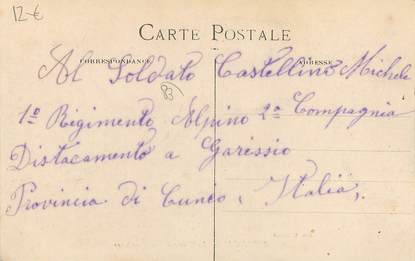 12-€
CARTE POSTALE
CORRESPONDANCE ADRESSE
Al Soldato Castellino Michele
83
1º Regimento Alpino 2ª Compagnia
Distacamento a Garessio
Provincia di Cuneo, Italia,